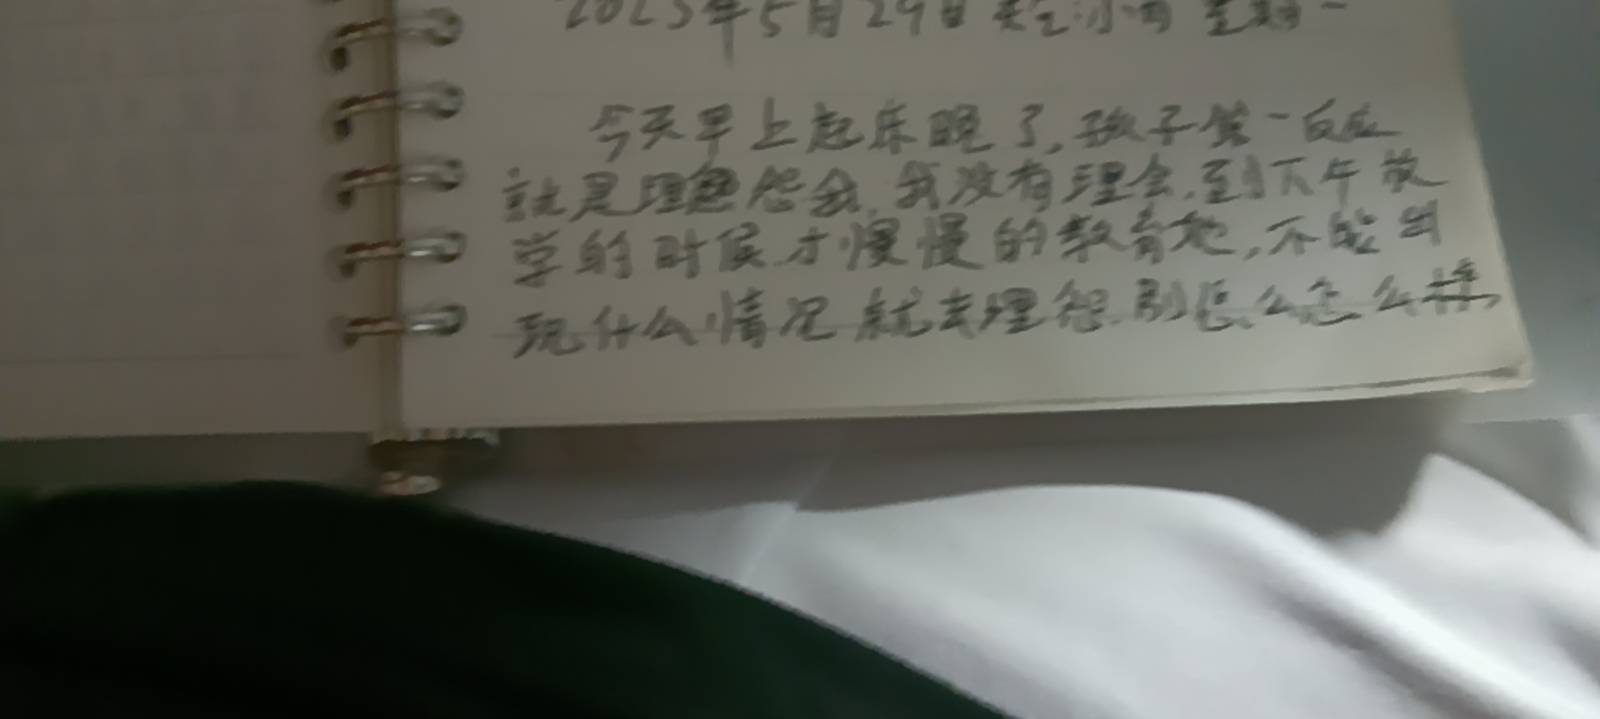 2023年5月29日 天气小雨 星期一
今天早上起床晚了,孩子第一反应
就是埋怨我,我没有理会,到下午放
学的时候才慢慢的教育她,不能出
现什么情况就去埋怨别怎么怎么样,